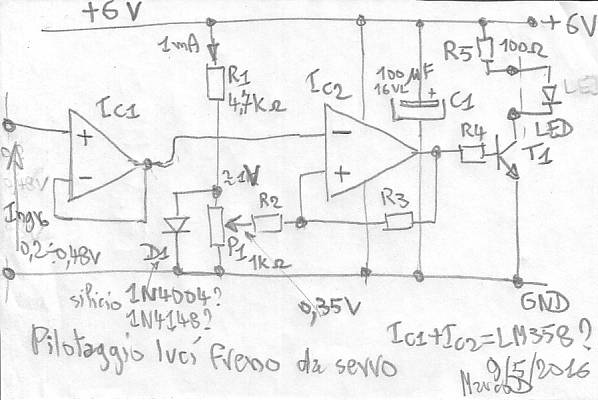 +6V
+6V
1mA
R5
100Ω
R1
4,7KΩ
IC1
IC2
100µF
16VL
C1
LED
LED
+
-
-
+
R4
T1
0,48V
≈1V
R2
R3
Ing
0,2÷0,48V
D1
P1
1KΩ
silicio 1N4004?
1N4148?
0,35V
GND
IC1+IC2=LM358?
Pilotaggio luci freno da servo
9/5/2016